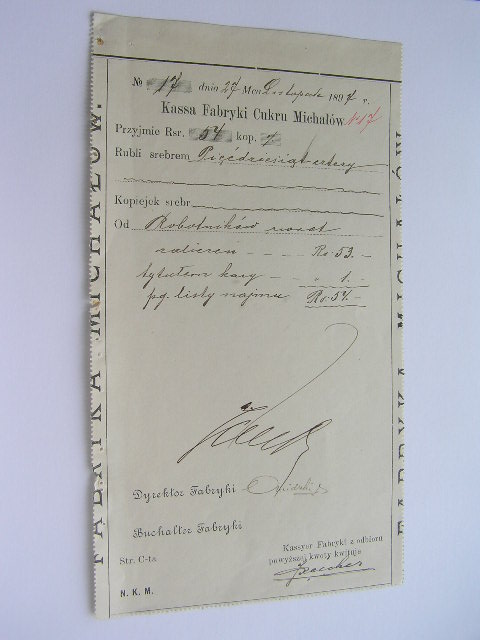 № 17 dnia 27 Mca Listopada 1897 r.
Kassa Fabryki Cukru Michałów. N 17
Przyjmie Rsr. 54 kop.
Rubli srebrem Pięćdziesiąt cztery
Kopiejek srebr
Od Robotników
Rs. 53. -
tytułem kary - - 1. -
pg. listy najmu Rs. 54. -
Dyrektor Fabryki
Buchalter Fabryki
Kassyer Fabryki z odbioru
powyższej kwoty kwituje
Str. C-ta
N. K. M.
FABRYKA MICHAŁÓW.
FABRYKA MICHAŁÓW